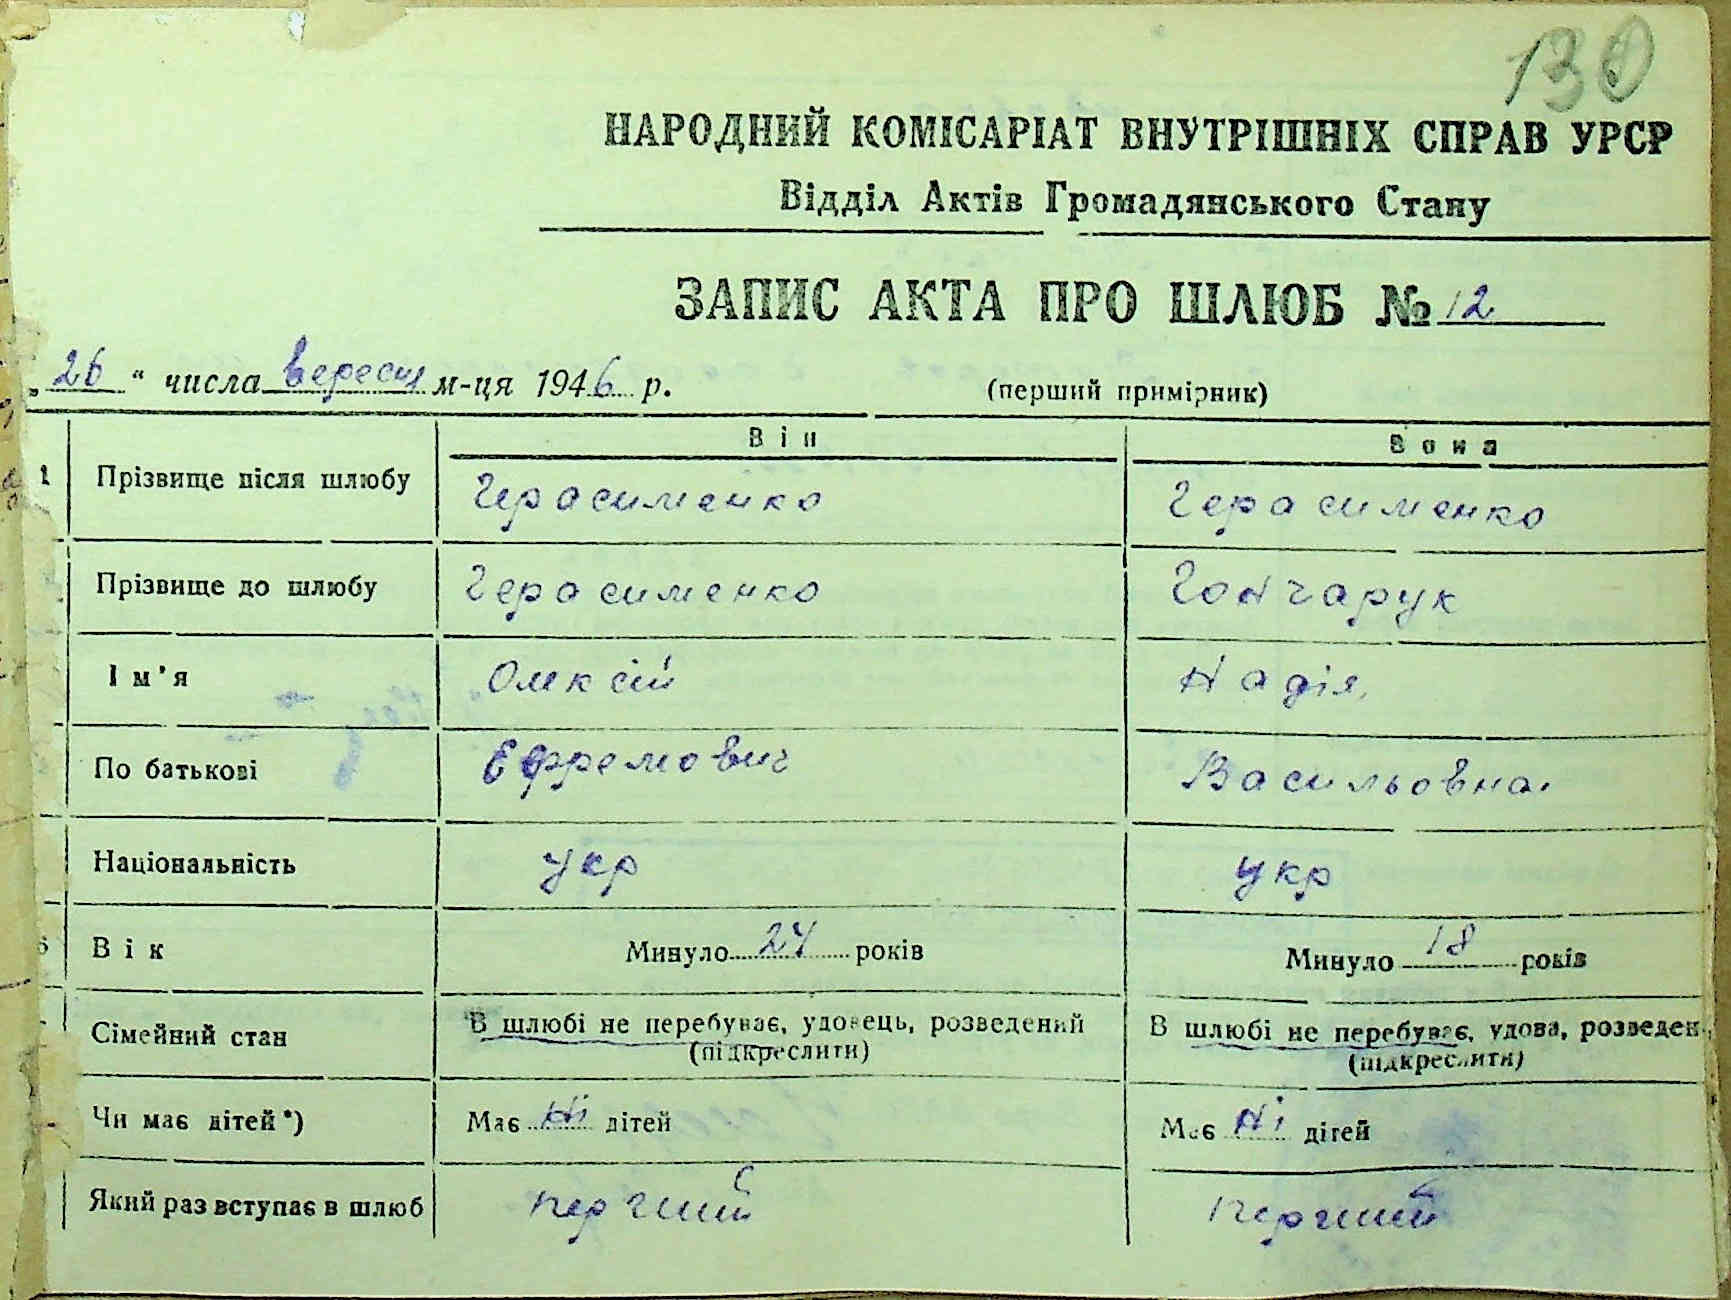 130
НАРОДНИЙ КОМІСАРІАТ ВНУТРІШНІХ СПРАВ УРСР
Відділ Актів Громадянського Стану
ЗАПИС АКТА ПРО ШЛЮБ № 12
„26“ числа вересня м-ця 1946 р. (перший примірник)
Він Вона
1 Прізвище після шлюбу Герасименко Герасименко
Прізвище до шлюбу Герасименко Гончарук
Ім'я Олексій Надія
По батькові Ефремович Васильовна
Національність укр укр
6 Вік Минуло 24 років Минуло 18 років
Сімейний стан В шлюбі не перебуває, удовець, розведений В шлюбі не перебуває, удова, розведен
(підкреслити) (підкреслити)
Чи має дітей*) Має ні дітей Має ні дітей
Який раз вступає в шлюб перший перший